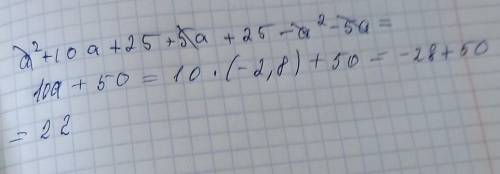 a²+10a+25+5a+25-a²-5a=
10a+50=10·(-2,8)+50=-28+50
=22